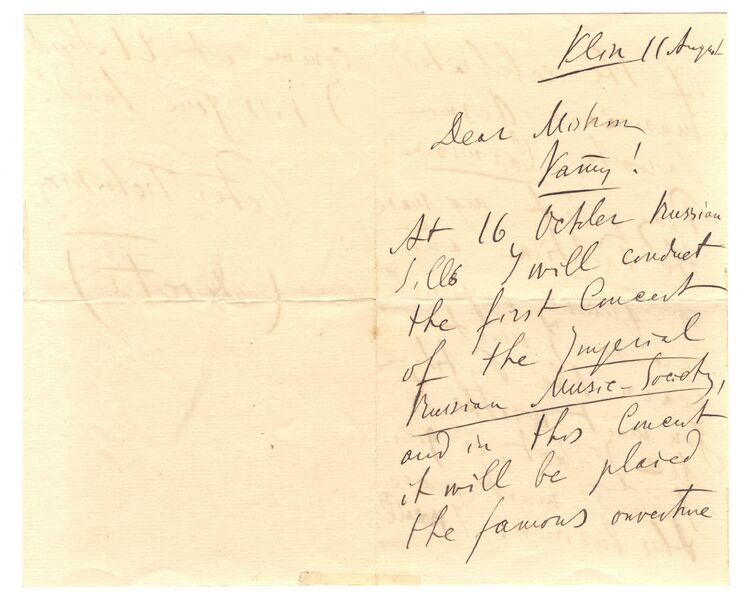 Klin 11 August
Dear
At 16, October Russian
I will conduct
the first Concert
of the Imperial
Russian Music-Society,
and in this Concert
it will be plaied
the famous ouverture